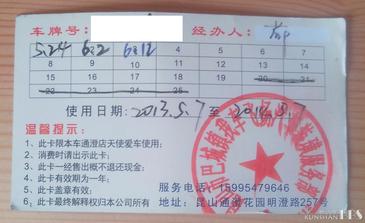 车牌号: 经办人:
5.24 6.2 6.12 4 5 6 7
8 9 10 11 12 13 14
15 16 17 18 19 20 21
22 23 24 25
使用日期: 2013.5.7 至 2014.5.7
温馨提示:
1、此卡限本车通澄店天使爱车使用;
2、消费时请出示此卡;
3、此卡一经售出概不退还现金;
4、此卡有效期为一年;
5、此卡盖章有效;
6、此卡最终解释权归本公司所有
服务电话: 15995479646
地址: 昆山通澄花园明澄路257号
巴城镇
KUNSHAN BBS